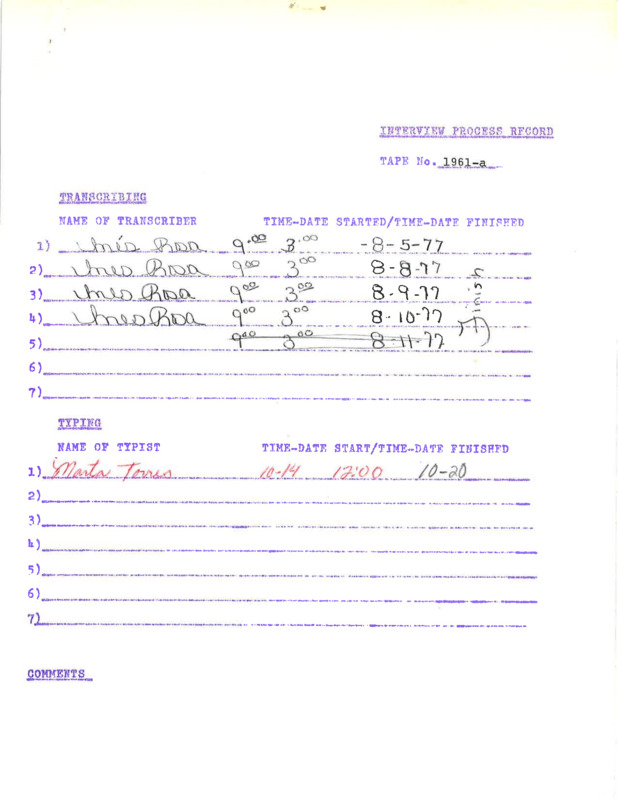 INTERVIEW PROCESS RECORD
TAPE No. 1961-a
TRANSCRIBING
NAME OF TRANSCRIBER TIME-DATE STARTED/TIME-DATE FINISHED
1) Inés Rosa 9:00 3:00 -8-5-77
2) Ines Rosa 9 00 3 00 8-8-77
3) Ines Rosa 9 00 3 00 8-9-77
4) Ines Rosa 9 00 3 00 8-10-77
5) 9 00 3 00 8-11-77
6)
7)
TYPING
NAME OF TYPIST TIME-DATE START/TIME-DATE FINISHED
1) Marta Torres 10-14 12:00 10-20
2)
3)
4)
5)
6)
7)
COMMENTS